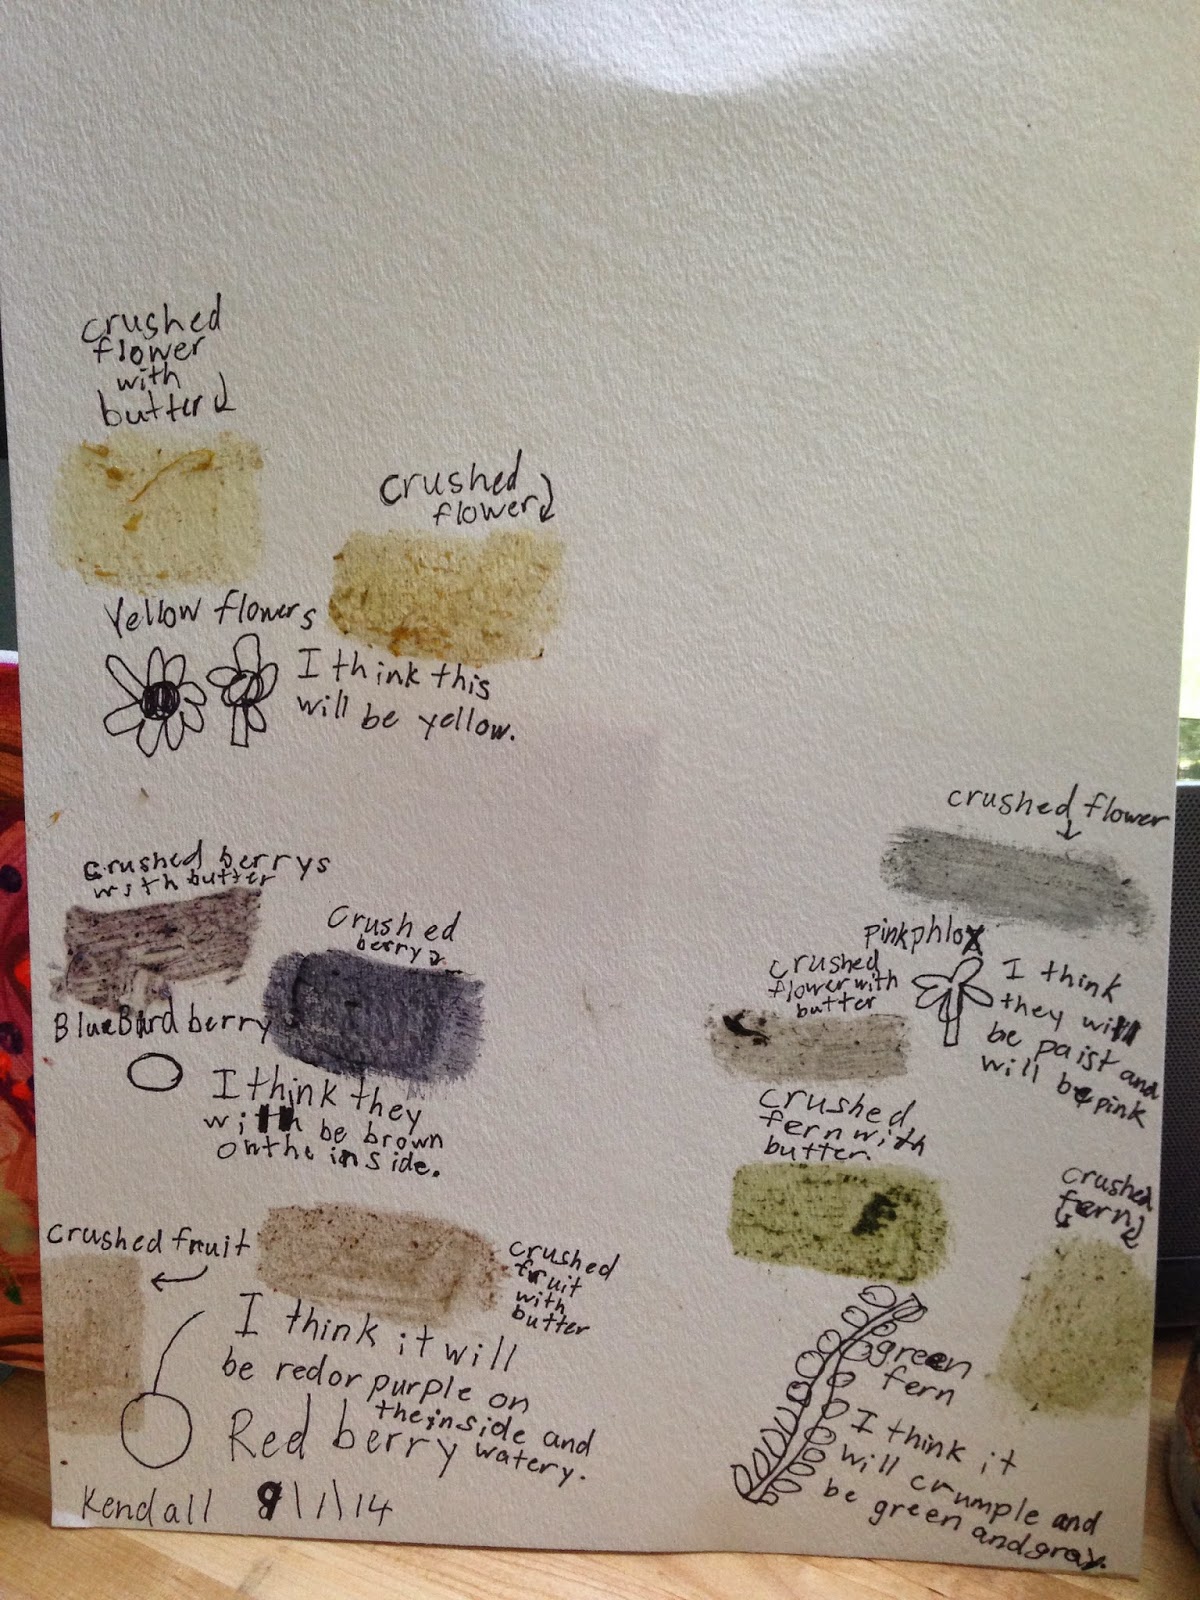 crushed
flower
with
butter
crushed
flower
Yellow flowers
I think this
will be yellow.
crushed berrys
with butter
Crushed
berry
berry
I think they
with be brown
on the inside.
crushed fruit
crushed
fruit
with
butter
I think it will
be red or purple on
the inside and
Red berry watery.
Kendall 9/1/14
crushed flower
pink phlox
crushed
flower with
butter
I think
they will
be paist and
will be pink
crushed
fern with
butter
crushed
fern
green
fern
I think it
will crumple and
be green and gray.